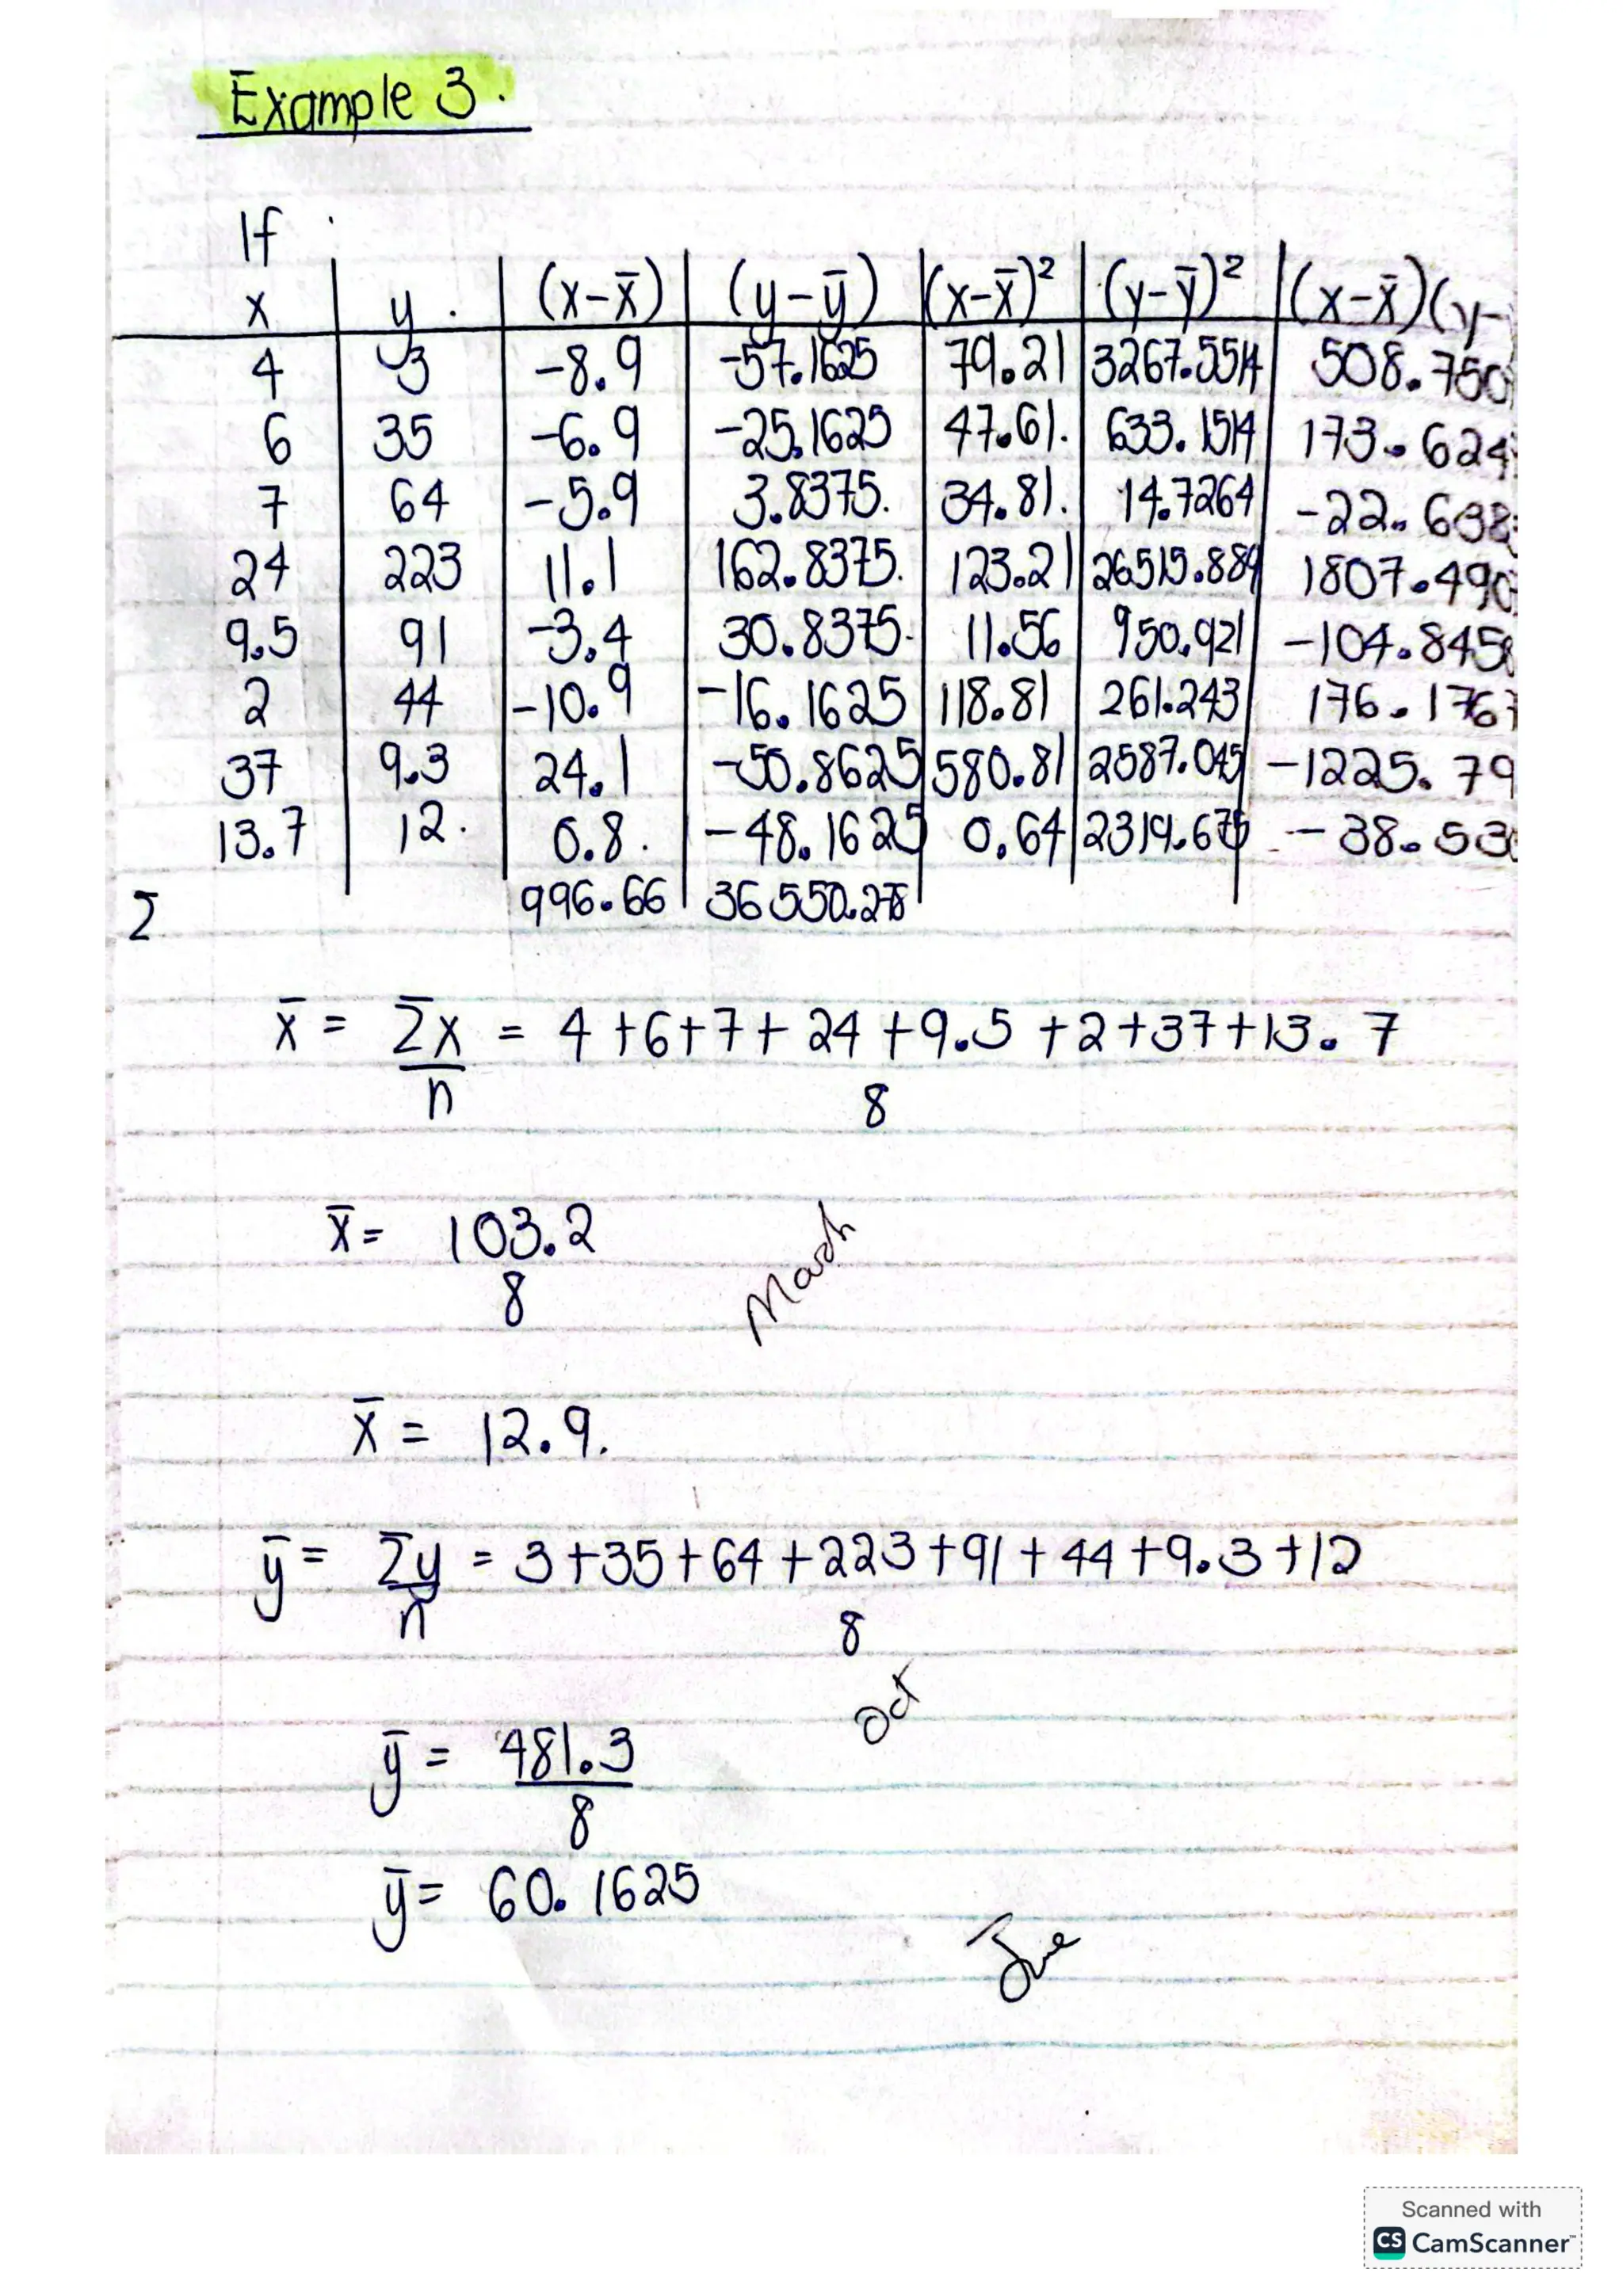 Example 3.
If
x | y. | (x-x̄) | (y-ȳ) | (x-x̄)² | (y-ȳ)² | (x-x̄)(y-
4 | 3 | -8.9 | -57.1625 | 79.21 | 3267.5514 | 508.750
6 | 35 | -6.9 | -25.1625 | 47.61. | 633.1514 | 173.624
7 | 64 | -5.9 | 3.8375. | 34.81. | 14.7264 | -22.638
24 | 223 | 11.1 | 162.8375. | 123.21 | 26515.889 | 1807.490
9.5 | 91 | -3.4 | 30.8375. | 11.56 | 950.921 | -104.845
2 | 44 | -10.9 | -16.1625 | 118.81 | 261.243 | 176.176
37 | 9.3 | 24.1 | -50.8625 | 580.81 | 2587.045 | -1225.79
13.7 | 12. | 0.8. | -48.1625 | 0.64 | 2319.675 | -38.53
Σ 996.66 | 36550.278
x̄ = Σx = 4+6+7+24+9.5+2+37+13.7
n 8
x̄ = 103.2
8
March
x̄ = 12.9.
ȳ = Σy = 3+35+64+223+91+44+9.3+12
n 8
Oct
ȳ = 481.3
8
ȳ = 60.1625
Scanned with
CS CamScanner™